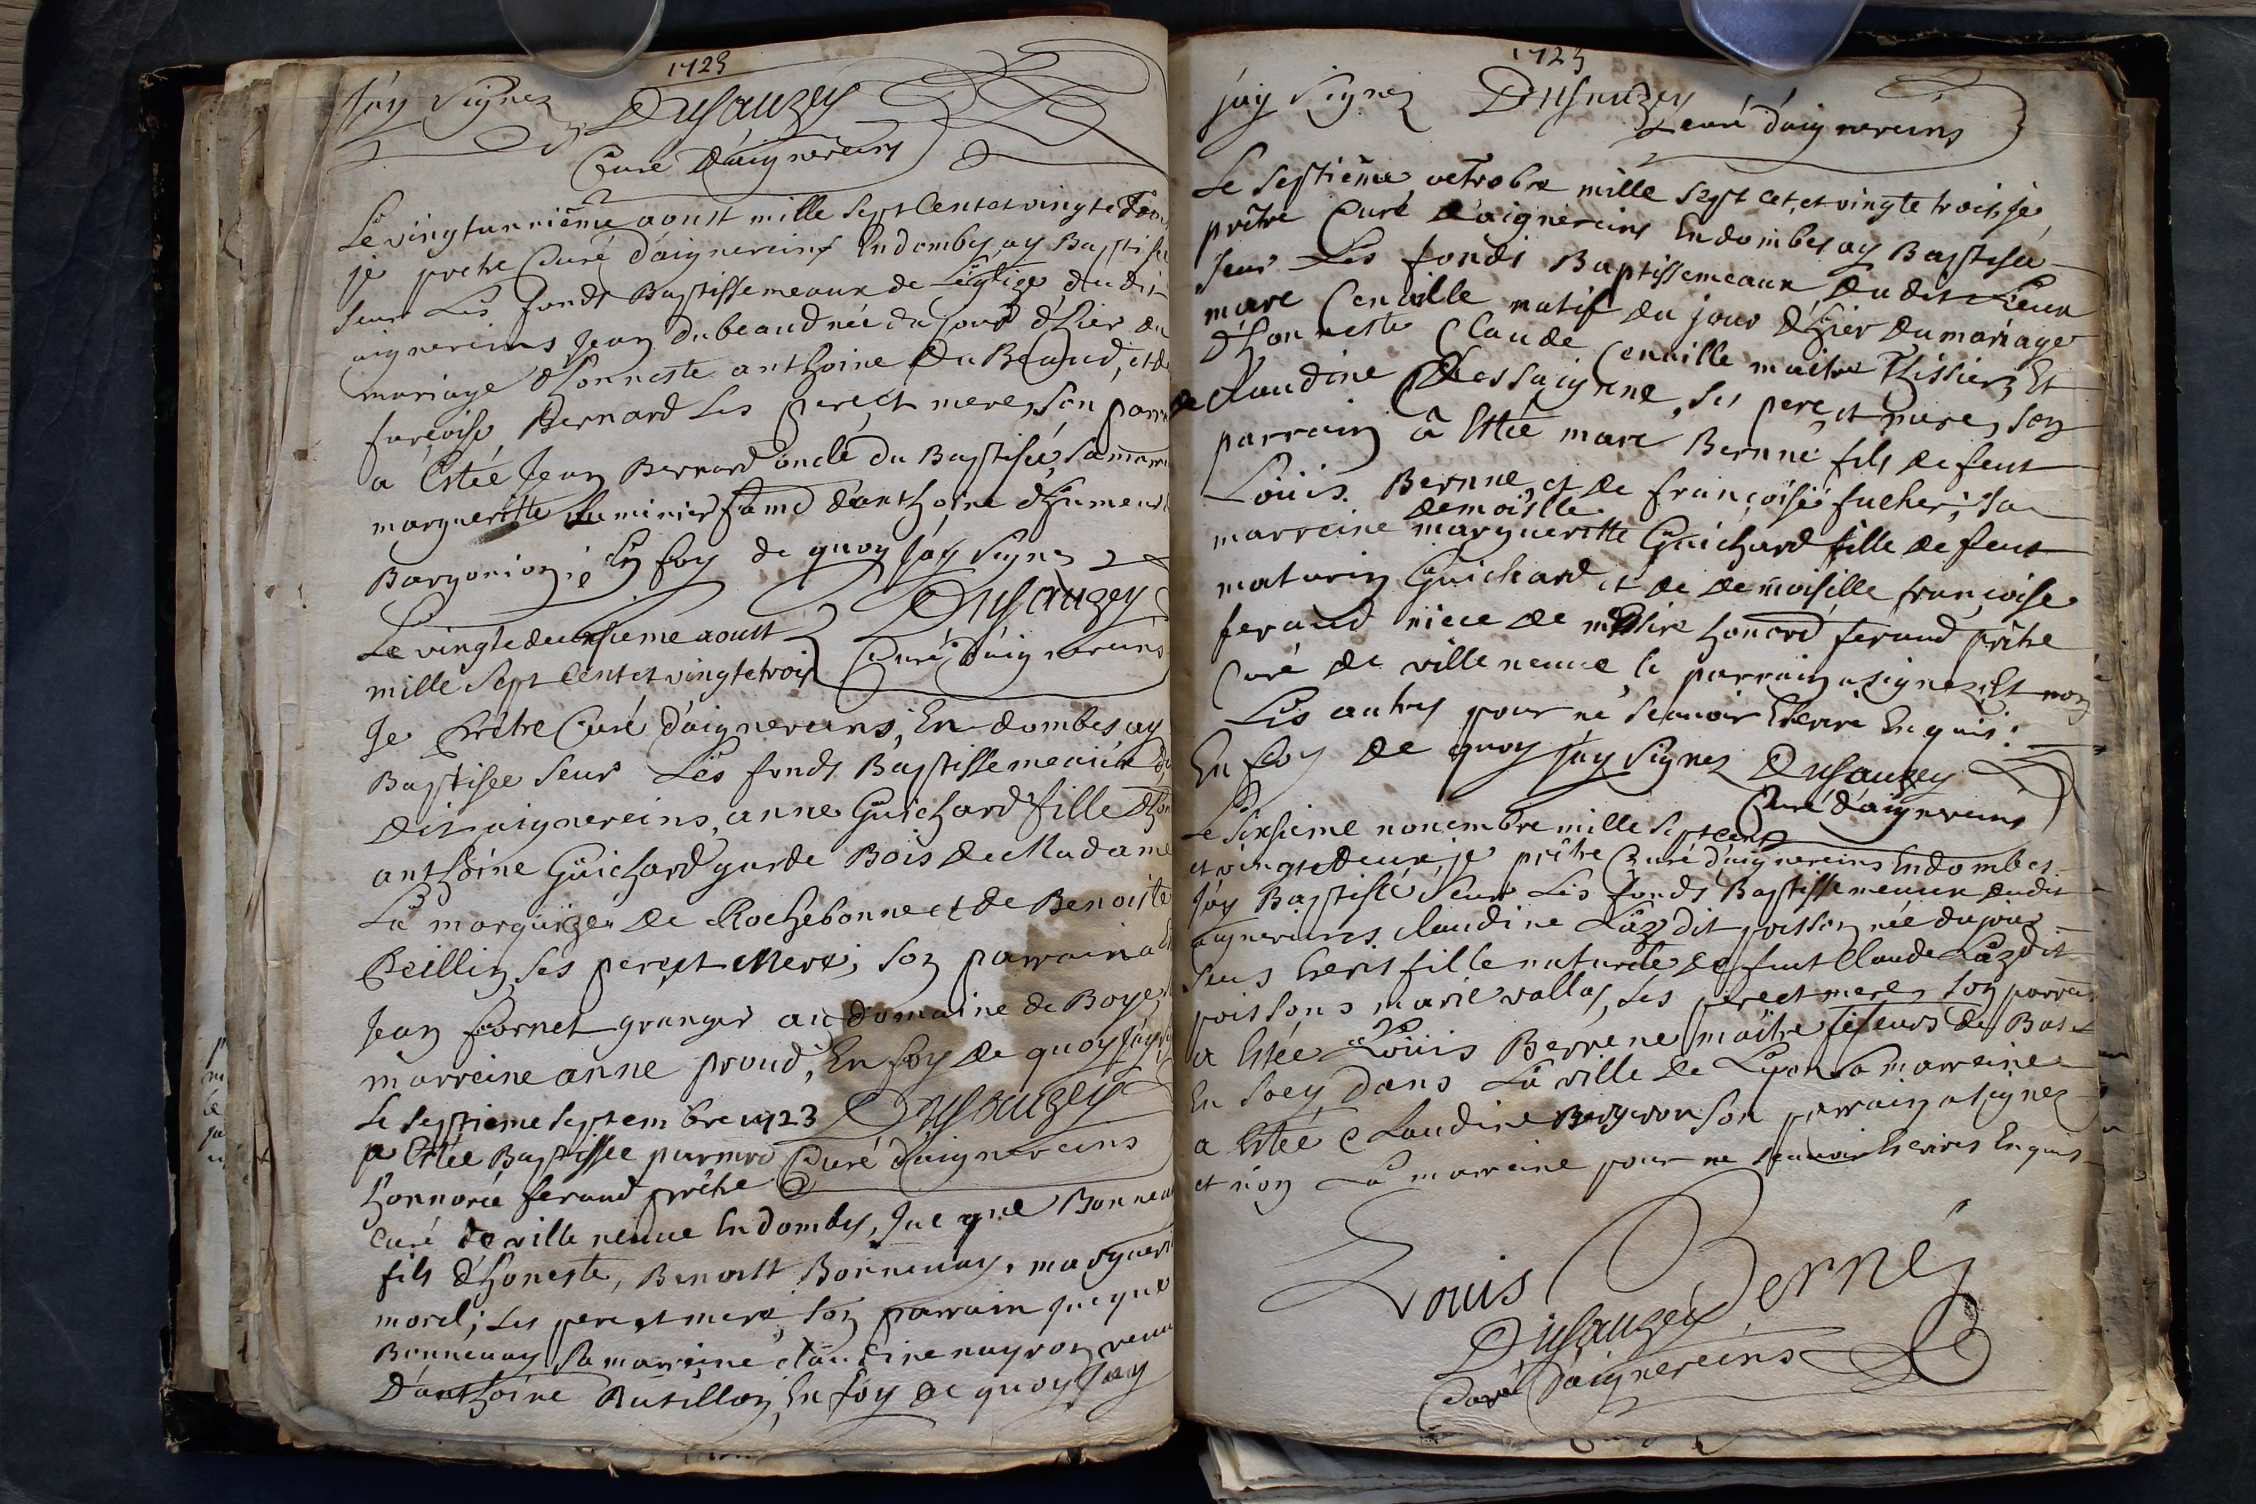 1723
J'ay signez Dusauzey
Curé d'aignereins
Le vingtunnième aoust mille sept Cent et vingte
je pretre Curé d'aignereins En dombes ay Baptisé
seur Les fonds Baptissemeaux de L'églize du dit
aignereins Jean Dubeaud née du jour d'hier du
mariage d'honneste anthoine Du Beaud, et de
francoise Bernard Les pere et mere, son parra
a Estée Jean Bernard oncle du Baptisée, sa marr
margueritte fame d'anthoine
En foy de quoy J'ay signez
Dusauzey
Curé d'aignereins
Le vingtedeuxsieme aoust
mille sept Cent et vingtetrois
Je Prêtre Curé d'aignereins, En dombes ay
Baptisée seur Les fonds Baptissemeaux du
Dit aignereins, anne Guichard fille d'hon
anthoine Guichard garde Bois de Madame
La marquize de Rochebonne et de Benoiste
Peillin ses pere et Mere, son parrain a
Jean Cornet granger au domaine de Boye
marreine anne proud, En foy de quoy J'ay
Dusauzey
Curé d'aignereins
Le septieme septembre 1723
a Estée Baptissée par
honnorée feraud prêtre
Curé de ville neuve En dombes, Jacque Bonnenay
fils d'honeste, Benoist Bonnenay, marguerit
morel; Les pere et mere, son parrain Jacque
Bonnenay sa marreine Claudine veuve
D'anthoine Butillon, En foy de quoy J'ay
1723
j'ay signez Dusauzey
Curé d'aignereins
Le septième octrobre mille sept cet, et vingte trois, je
prêtre Curé d'aignereins En dombes ay Baptisée
seur Les fonds Baptissemeaux du dit Lieux
marc Cenaille natif du jour d'hier du mariage
d'honneste Claude Cenaille maitre Thissier Et
de Claudine Dessaigne, ses pere, et mere, son
parrain â Estée marc Bernne fils de feut
Loüis Bernne, et de françoise fucher; sa
marreine demoiselle margueritte Guichard fille de feut
maturin Guichard et de demoiselle francoise
feraud niece de messire honoré feraud prêtre
Curé de ville neuve le parrain a signez Et non
Les autres pour ne scauoir Escrire Enquis:
En foy de quoy J'ay signez Dusauzey
Curé d'aignereins
Le sixsieme nonembre mille sept cent
et vingtedeux je prêtre Curé d'aignereins En dombes
J'ay Baptisée seur Les fonds Baptissemeaux dudit
aignereins Claudine Laz dit poisson née du jour
fille naturele de feut Claude Laz dit
poissons marie vallas, Les pere et mere, son parrain
a Estée Loüis Berrene maître
dans La ville de Lyon sa marreine
a Estée Claudine Bergeron son parrain a signez
et non La marreine pour ne scauoir Escrires Enquis
Louis Berné
Dusauzey
Curé d'aignereins